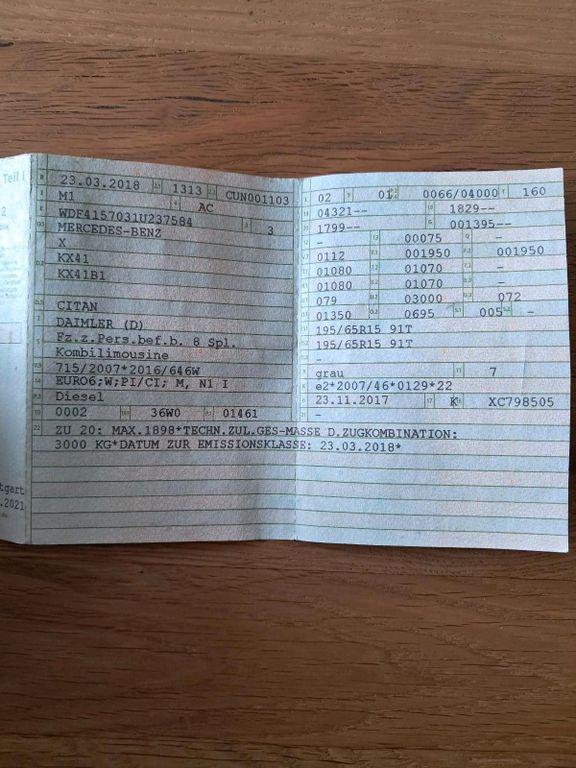 Teil I
23.03.2018 1313 CUN001103
M1 AC
WDF4157031U237584 3
MERCEDES-BENZ
X
KX41
KX41B1
CITAN
DAIMLER (D)
Fz.z.Pers.bef.b. 8 Spl.
Kombilimousine
715/2007*2016/646W
EURO6;W;PI/CI; M, N1 I
Diesel
0002 36W0 01461
02 01 0066/04000 160
04321-- 1829--
1799-- 001395--
- 00075 -
0112 001950 001950
01080 01070 -
01080 01070 -
079 03000 072
01350 0695 005 -
195/65R15 91T
195/65R15 91T
-
grau 7
e2*2007/46*0129*22
23.11.2017 K XC798505
-
22 ZU 20: MAX.1898*TECHN.ZUL.GES-MASSE D.ZUGKOMBINATION:
3000 KG*DATUM ZUR EMISSIONSKLASSE: 23.03.2018*
tgart
.2021